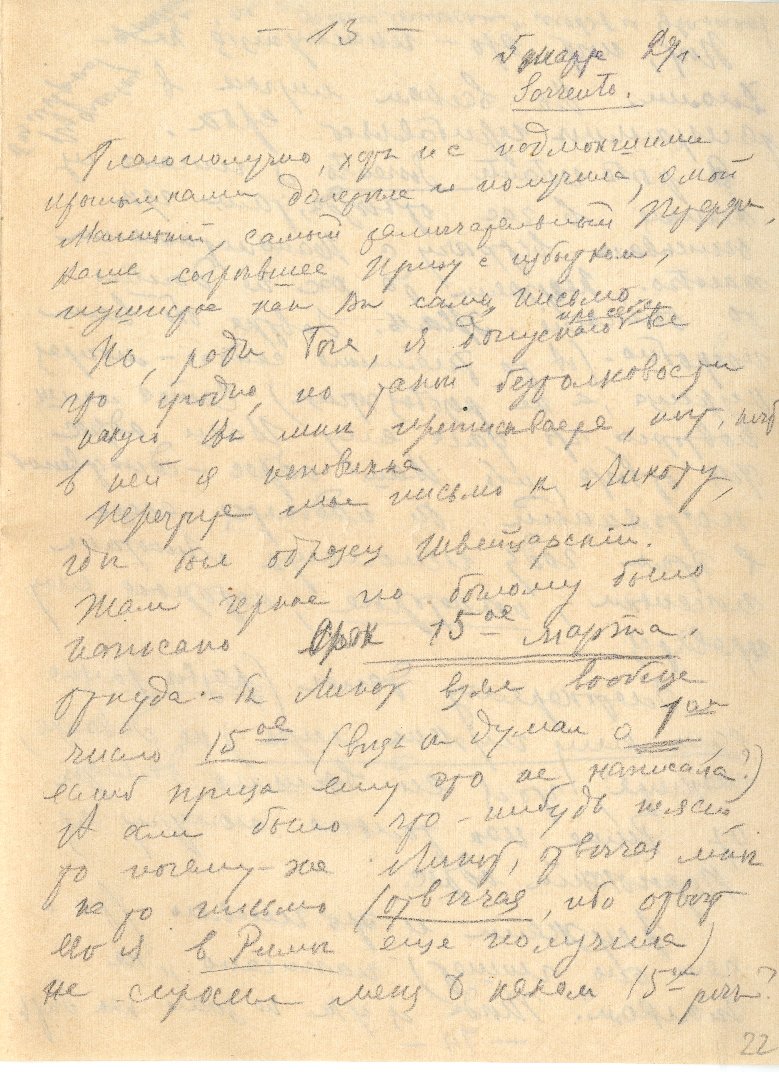 — 13 —
5 марта 29 г.
Sorrento.
Благополучно, хоть и с подмокшими
краями даже и получила, о мой
Маленький, самый замечательный
Ваше согревшее Птицу с избытком,
пушистое как Вы сами, письмо
Но, ради Бога, я допускаю про себя все
что угодно, но такой безтолковости
какую Вы мне приписываете, нет, нет
в ней я неповинна
Перечтите мое письмо к Линоту,
где был образец Швейцарскій.
Там черное по белому было
написано Срок 15ое марта.
откуда-бы Линот взял вообще
число 15ое (ведь он думал о 1ом
если б птица ему это не написала?)
И если было что-нибудь неясно
то почему-же Линот, отвечая мне
на то письмо (отвечая, ибо ответ
его я в Риме еще получила)
не спросил меня о каком 15ом речь?
22